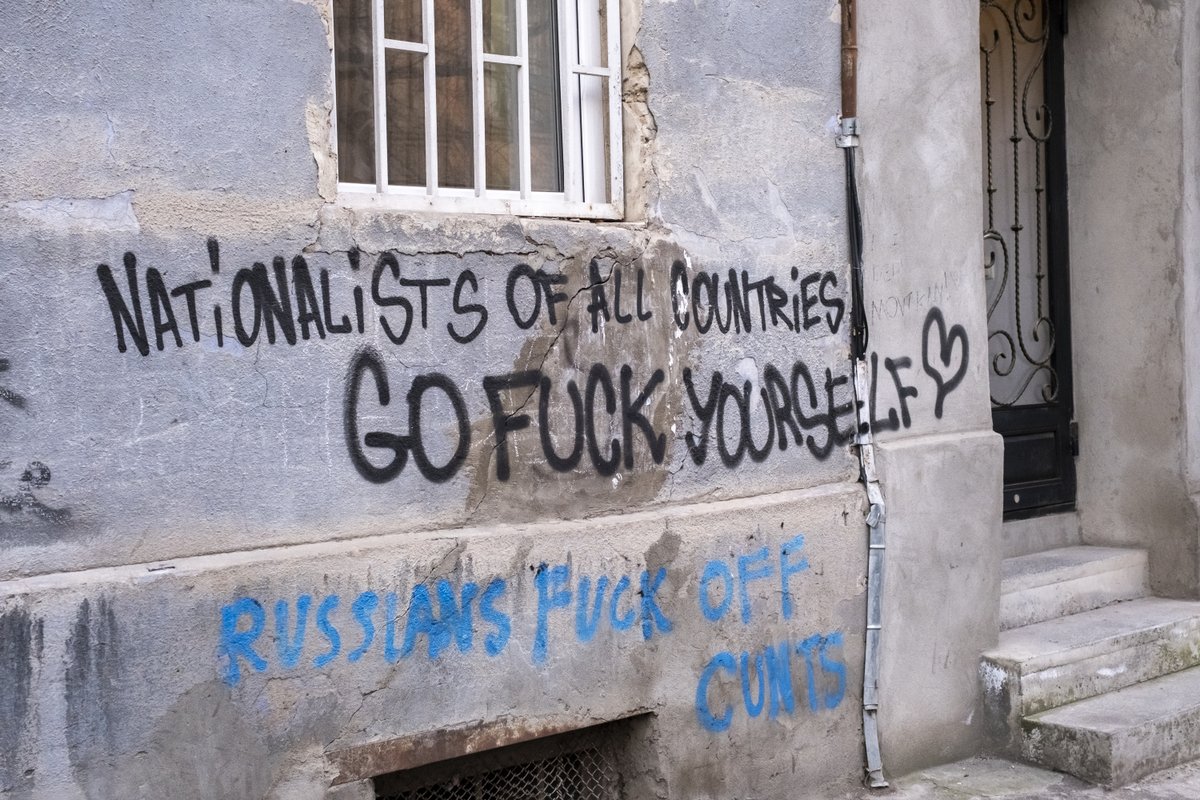 NATiONALiSTS OF ALL COUNTRiES
GO FUCK YOURSELF
RUSSIANS FUCK OFF
CUNTS